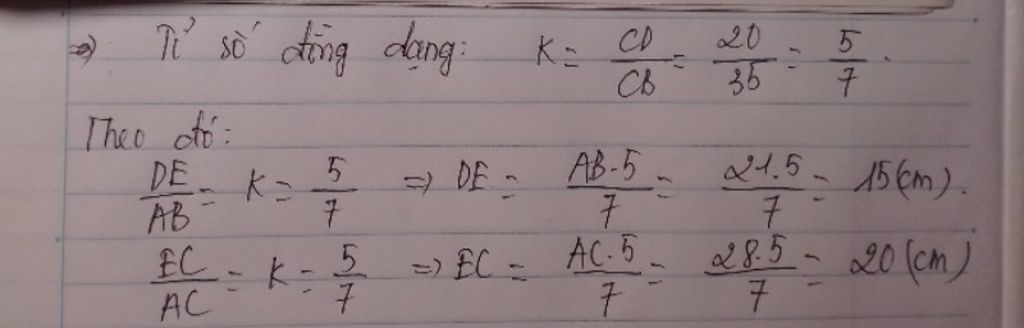 => Tỉ số đồng dạng: K = CD/CB = 20/35 = 5/7.
Theo đó:
DE/AB = K = 5/7 => DE = AB.5/7 = 21.5/7 = 15(cm).
EC/AC = K = 5/7 => EC = AC.5/7 = 28.5/7 = 20(cm)